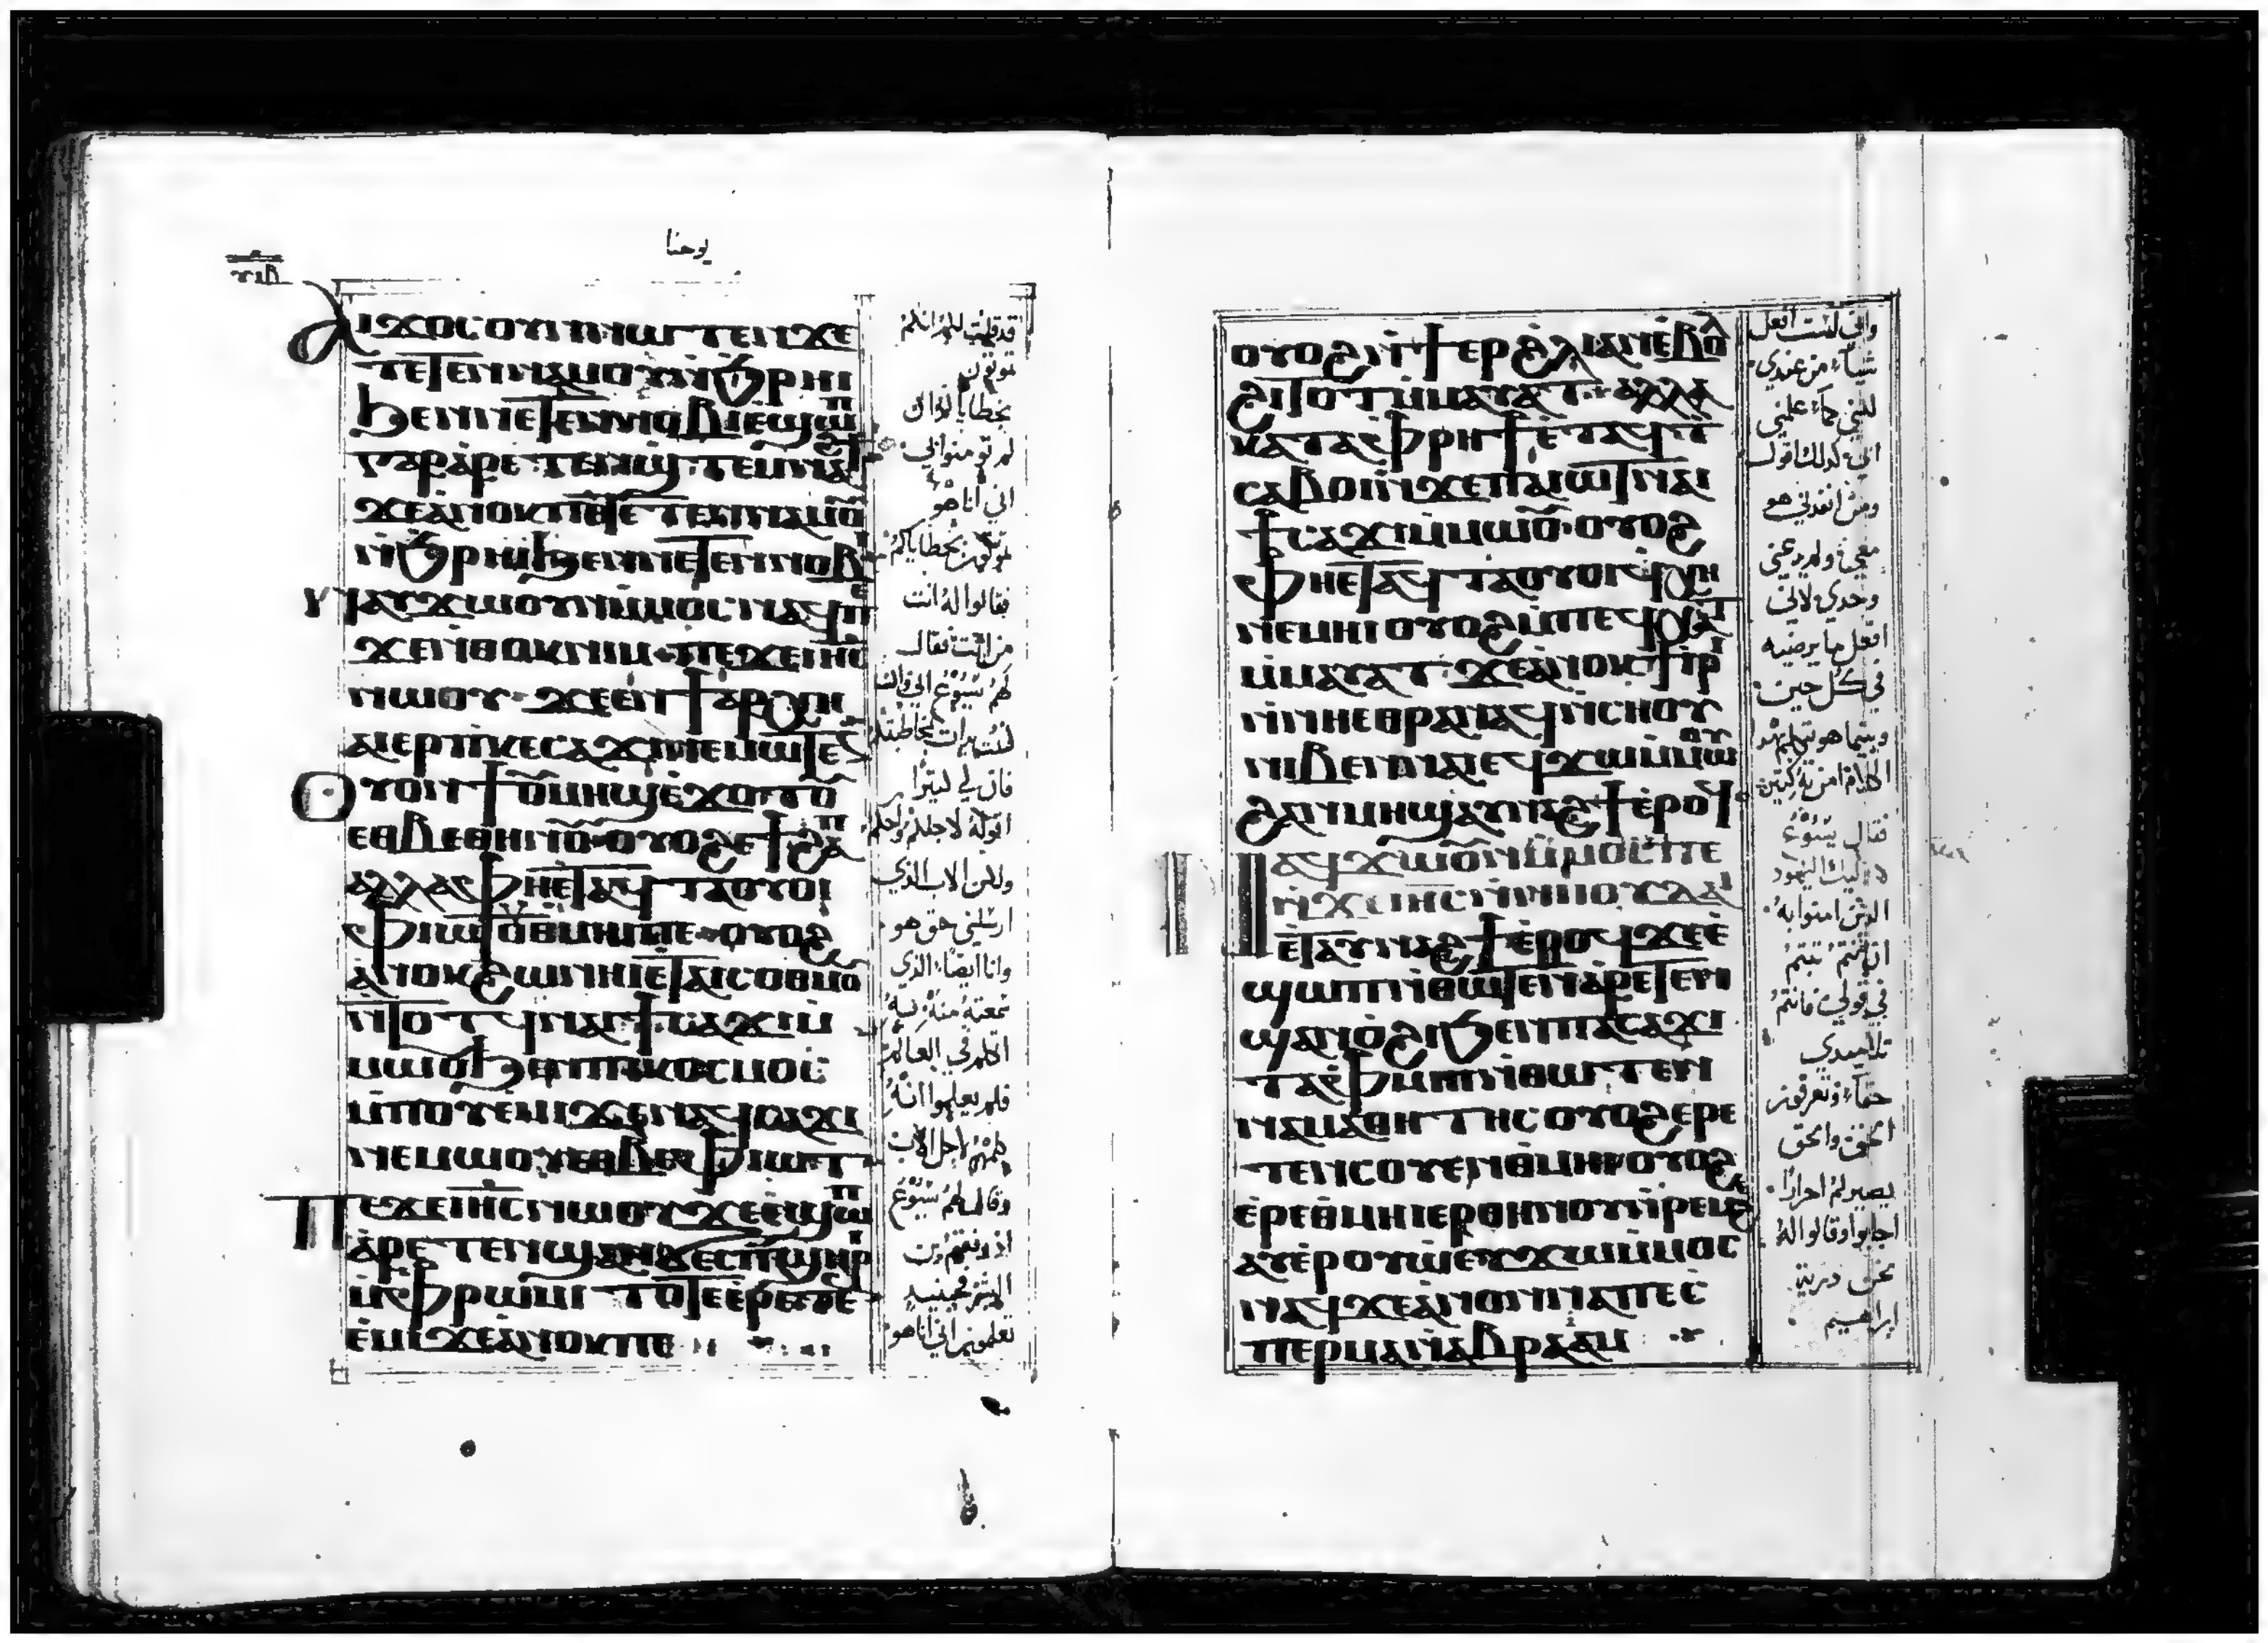 يوحنا
ⲁⲓϫⲟⲥ ⲟⲩⲛ ⲛⲱⲧⲉⲛ ϫⲉ
ⲧⲉⲧⲉⲛⲛⲁⲙⲟⲩ ⲛ̀ϧⲣⲏⲓ
ϧⲉⲛ ⲛⲉⲧⲉⲛⲛⲟⲃⲓ ⲉϣⲱⲡ
ⲅⲁⲣ ⲁⲣⲉⲧⲉⲛϣⲧⲉⲙⲛⲁϩϯ
ϫⲉ ⲁⲛⲟⲕ ⲡⲉ ⲧⲉⲧⲉⲛⲛⲁⲙⲟⲩ
ⲛ̀ϧⲣⲏⲓ ϧⲉⲛ ⲛⲉⲧⲉⲛⲛⲟⲃⲓ
ⲛⲁⲩϫⲱ ⲟⲩⲛ ⲙ̀ⲙⲟⲥ ⲛⲁϥ ⲡⲉ
ϫⲉ ⲛ̀ⲑⲟⲕ ⲛⲓⲙ ⲡⲉϫⲉ ⲓⲏⲥ
ⲛⲱⲟⲩ ϫⲉ ⲉⲛ ϯⲁⲣⲭⲏ
ⲁⲓⲉⲣⲡⲕⲉⲥⲁϫⲓ ⲛⲉⲙⲱⲧⲉⲛ
ⲟⲩⲟⲛϯ ⲟⲩⲙⲏϣ ⲉ̀ϫⲟⲧⲟⲩ
ⲉⲑⲃⲉ ⲑⲏⲛⲟⲩ ⲟⲩⲟϩ ⲉϯϩⲁⲡ
ⲁⲗⲗⲁ ⲫⲏⲉⲧⲁϥⲧⲁⲟⲩⲟⲓ
ⲫⲓⲱⲧ ⲟⲩⲑⲙⲏⲓ ⲡⲉ ⲟⲩⲟϩ
ⲁⲛⲟⲕ ϩⲱ ⲛⲏⲉⲧⲁⲓⲥⲟⲑⲙⲟⲩ
ⲛ̀ⲧⲟⲧϥ ⲛⲁⲓ ϯⲥⲁϫⲓ ⲙ̀
ⲙⲱⲟⲩ ϧⲉⲛ ⲡⲓⲕⲟⲥⲙⲟⲥ
ⲙ̀ⲡⲟⲩⲉⲙⲓ ϫⲉ ⲛⲁϥⲥⲁϫⲓ
ⲛⲉⲙⲱⲟⲩ ⲉⲑⲃⲉ ⲫⲓⲱⲧ
ⲡⲉϫⲉ ⲓⲏⲥ ⲛⲱⲟⲩ ϫⲉ ⲉϣⲱⲡ
ⲁⲣⲉⲧⲉⲛϣⲁⲛϭⲉⲥ ⲡϣⲏⲣⲓ
ⲙ̀ⲫⲣⲱⲙⲓ ⲧⲟⲧⲉ ⲉⲣⲉⲧⲉ
ⲉⲙⲓ ϫⲉ ⲁⲛⲟⲕ ⲡⲉ
قد قلت لكم انكم
تموتون
بخطاياكم لان
لم تومنوا بي
اني انا هو
تموتون بخطاياكم
فقالوا له انت
من انت فقال
لهم يسوع اني وان
كنت بدات بمخاطبتكم
فان لي كثيرا
اقوله لاجلكم واحكم
ولكن الاب الذي
ارسلني حق هو
وانا ايضا الذي
سمعته منه به
اتكلم في العالم
فلم يعلموا انه
كلمهم لاجل الاب
وقال لهم يسوع
اذا رفعتم ابن
البشر فحينيد
تعلمون اني انا هو
ⲟⲩⲟϩ ⲛ̀ϯⲉⲣ ϩⲗⲓ ⲁⲛ ⲉ̀ⲃⲟⲗ
ϩⲓⲧⲟⲧ ⲙ̀ⲙⲁⲩⲁⲧ ⲁⲗⲗⲁ
ⲕⲁⲧⲁ ⲫⲣⲏϯ ⲉ̀ⲧⲁϥⲧ
ⲥⲁⲃⲟⲓ ⲛ̀ϫⲉ ⲡⲁⲓⲱⲧ ⲛⲁⲓ
ϯⲥⲁϫⲓ ⲙ̀ⲙⲱⲟⲩ ⲟⲩⲟϩ
ⲫⲏⲉⲧⲁϥⲧⲁⲟⲩⲟⲓ ϥⲭⲏ
ⲛⲉⲙⲏⲓ ⲟⲩⲟϩ ⲙ̀ⲡⲉϥⲭⲁⲧ
ⲙ̀ⲙⲁⲩⲁⲧ ϫⲉ ⲁⲛⲟⲕ ϯⲓⲣⲓ
ⲛ̀ⲛⲏⲉⲑⲣⲁⲛⲁϥ ⲛ̀ⲥⲏⲟⲩ
ⲛⲓⲃⲉⲛ ⲛⲁⲓ ⲉϥϫⲱ ⲙ̀ⲙⲱⲟⲩ
ϩⲁⲛⲙⲏϣ ⲁⲩⲛⲁϩϯ ⲉ̀ⲣⲟϥ
ⲛⲁϥϫⲱ ⲟⲩⲛ ⲙ̀ⲙⲟⲥ ⲡⲉ
ⲛ̀ϫⲉ ⲓⲏⲥ ⲛ̀ⲛⲓⲓⲟⲩⲇⲁⲓ
ⲉⲧⲁⲩⲛⲁϩϯ ⲉ̀ⲣⲟϥ ϫⲉ ⲉ
ϣⲱⲡ ⲛ̀ⲑⲱⲧⲉⲛ ⲁⲣⲉⲧⲉⲛ
ϣⲁⲛⲟϩⲓ ϧⲉⲛ ⲡⲁⲥⲁϫⲓ
ⲧⲁⲫⲙⲏⲓ ⲛ̀ⲑⲱⲧⲉⲛ
ⲛⲁⲙⲁⲑⲏⲧⲏⲥ ⲟⲩⲟϩ ⲉⲣⲉ
ⲧⲉⲛⲥⲟⲩⲉⲛ ⲑⲙⲏⲓ ⲟⲩⲟϩ
ⲉ̀ⲣⲉ ⲑⲙⲏⲓ ⲉⲣ ⲑⲏⲛⲟⲩ ⲛ̀ⲣⲉⲙϩⲉ
ⲁⲩⲉ̀ⲣⲟⲩⲱ ⲉⲩϫⲱ ⲙ̀ⲙⲟⲥ
ⲛⲁϥ ϫⲉ ⲁⲛⲟⲛ ⲛⲁ ⲡⲉⲥ
ⲡⲉⲣⲙⲁ ⲛ̀ⲁⲃⲣⲁⲁⲙ
واني لست افعل
شيا من عندي
لكني كما علمني
ابي كذلك اقول
ومن انفدني هو
معي ولم يدعني
وحدي لاني
افعل ما يرضيه
في كل حين
وبينما هو يتكلم بهدا
الكلام امن به كثيرين
فقال يسوع
لاوليك اليهود
الذين امنوا به
ان انتم ثبتم
في قولي فانتم
تلاميدي
حقا وتعرفون
الحق والحق
يصيركم احرارا
اجابوا وقالوا له
نحن ذرية
ابراهيم